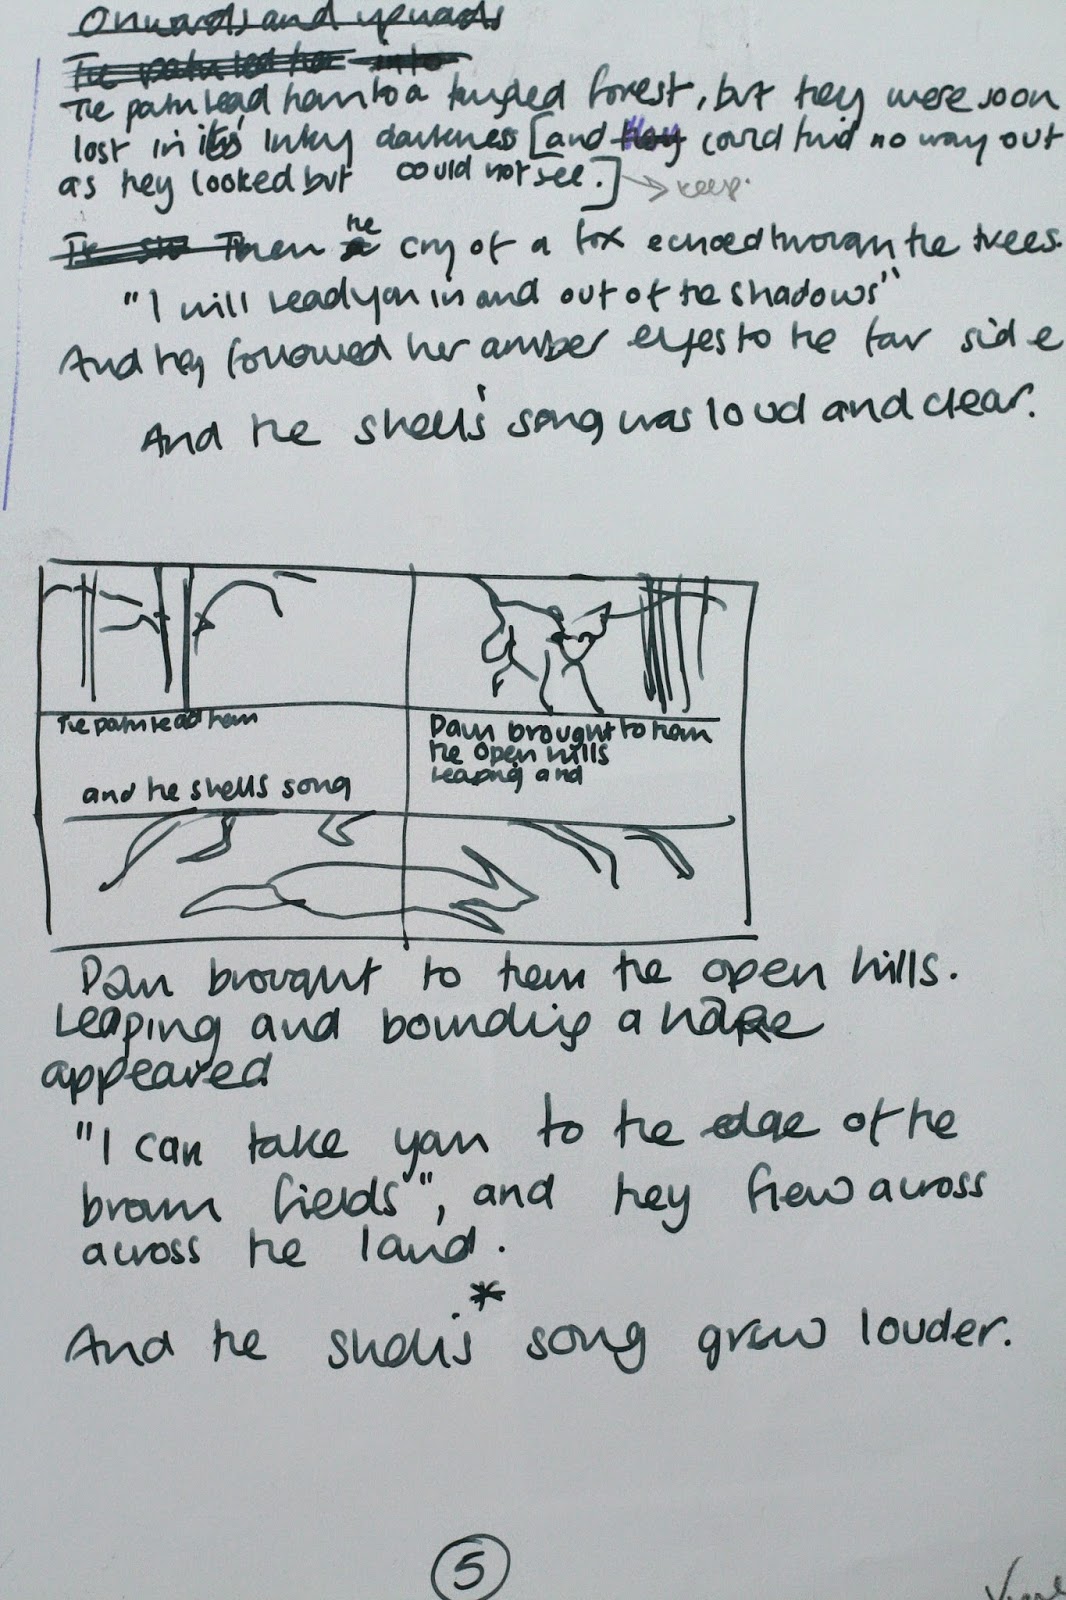 Onwards and upwards
The path led her into
The path lead them to a tangled forest, but they were soon
lost in its inky darkness [and they could find no way out
as they looked but could not see.] → keep.
Then the cry of a fox echoed through the trees.
"I will lead you in and out of the shadows"
And they followed her amber eyes to the far side
And the shell's song was loud and clear.
The path lead them
and the shells song
Dawn brought to them
the open hills
leaping and
Dawn brought to them the open hills.
Leaping and bounding a hare
appeared
"I can take you to the edge of the
brown fields", and they flew across
across the land.
*
And the shell's song grew louder.
5